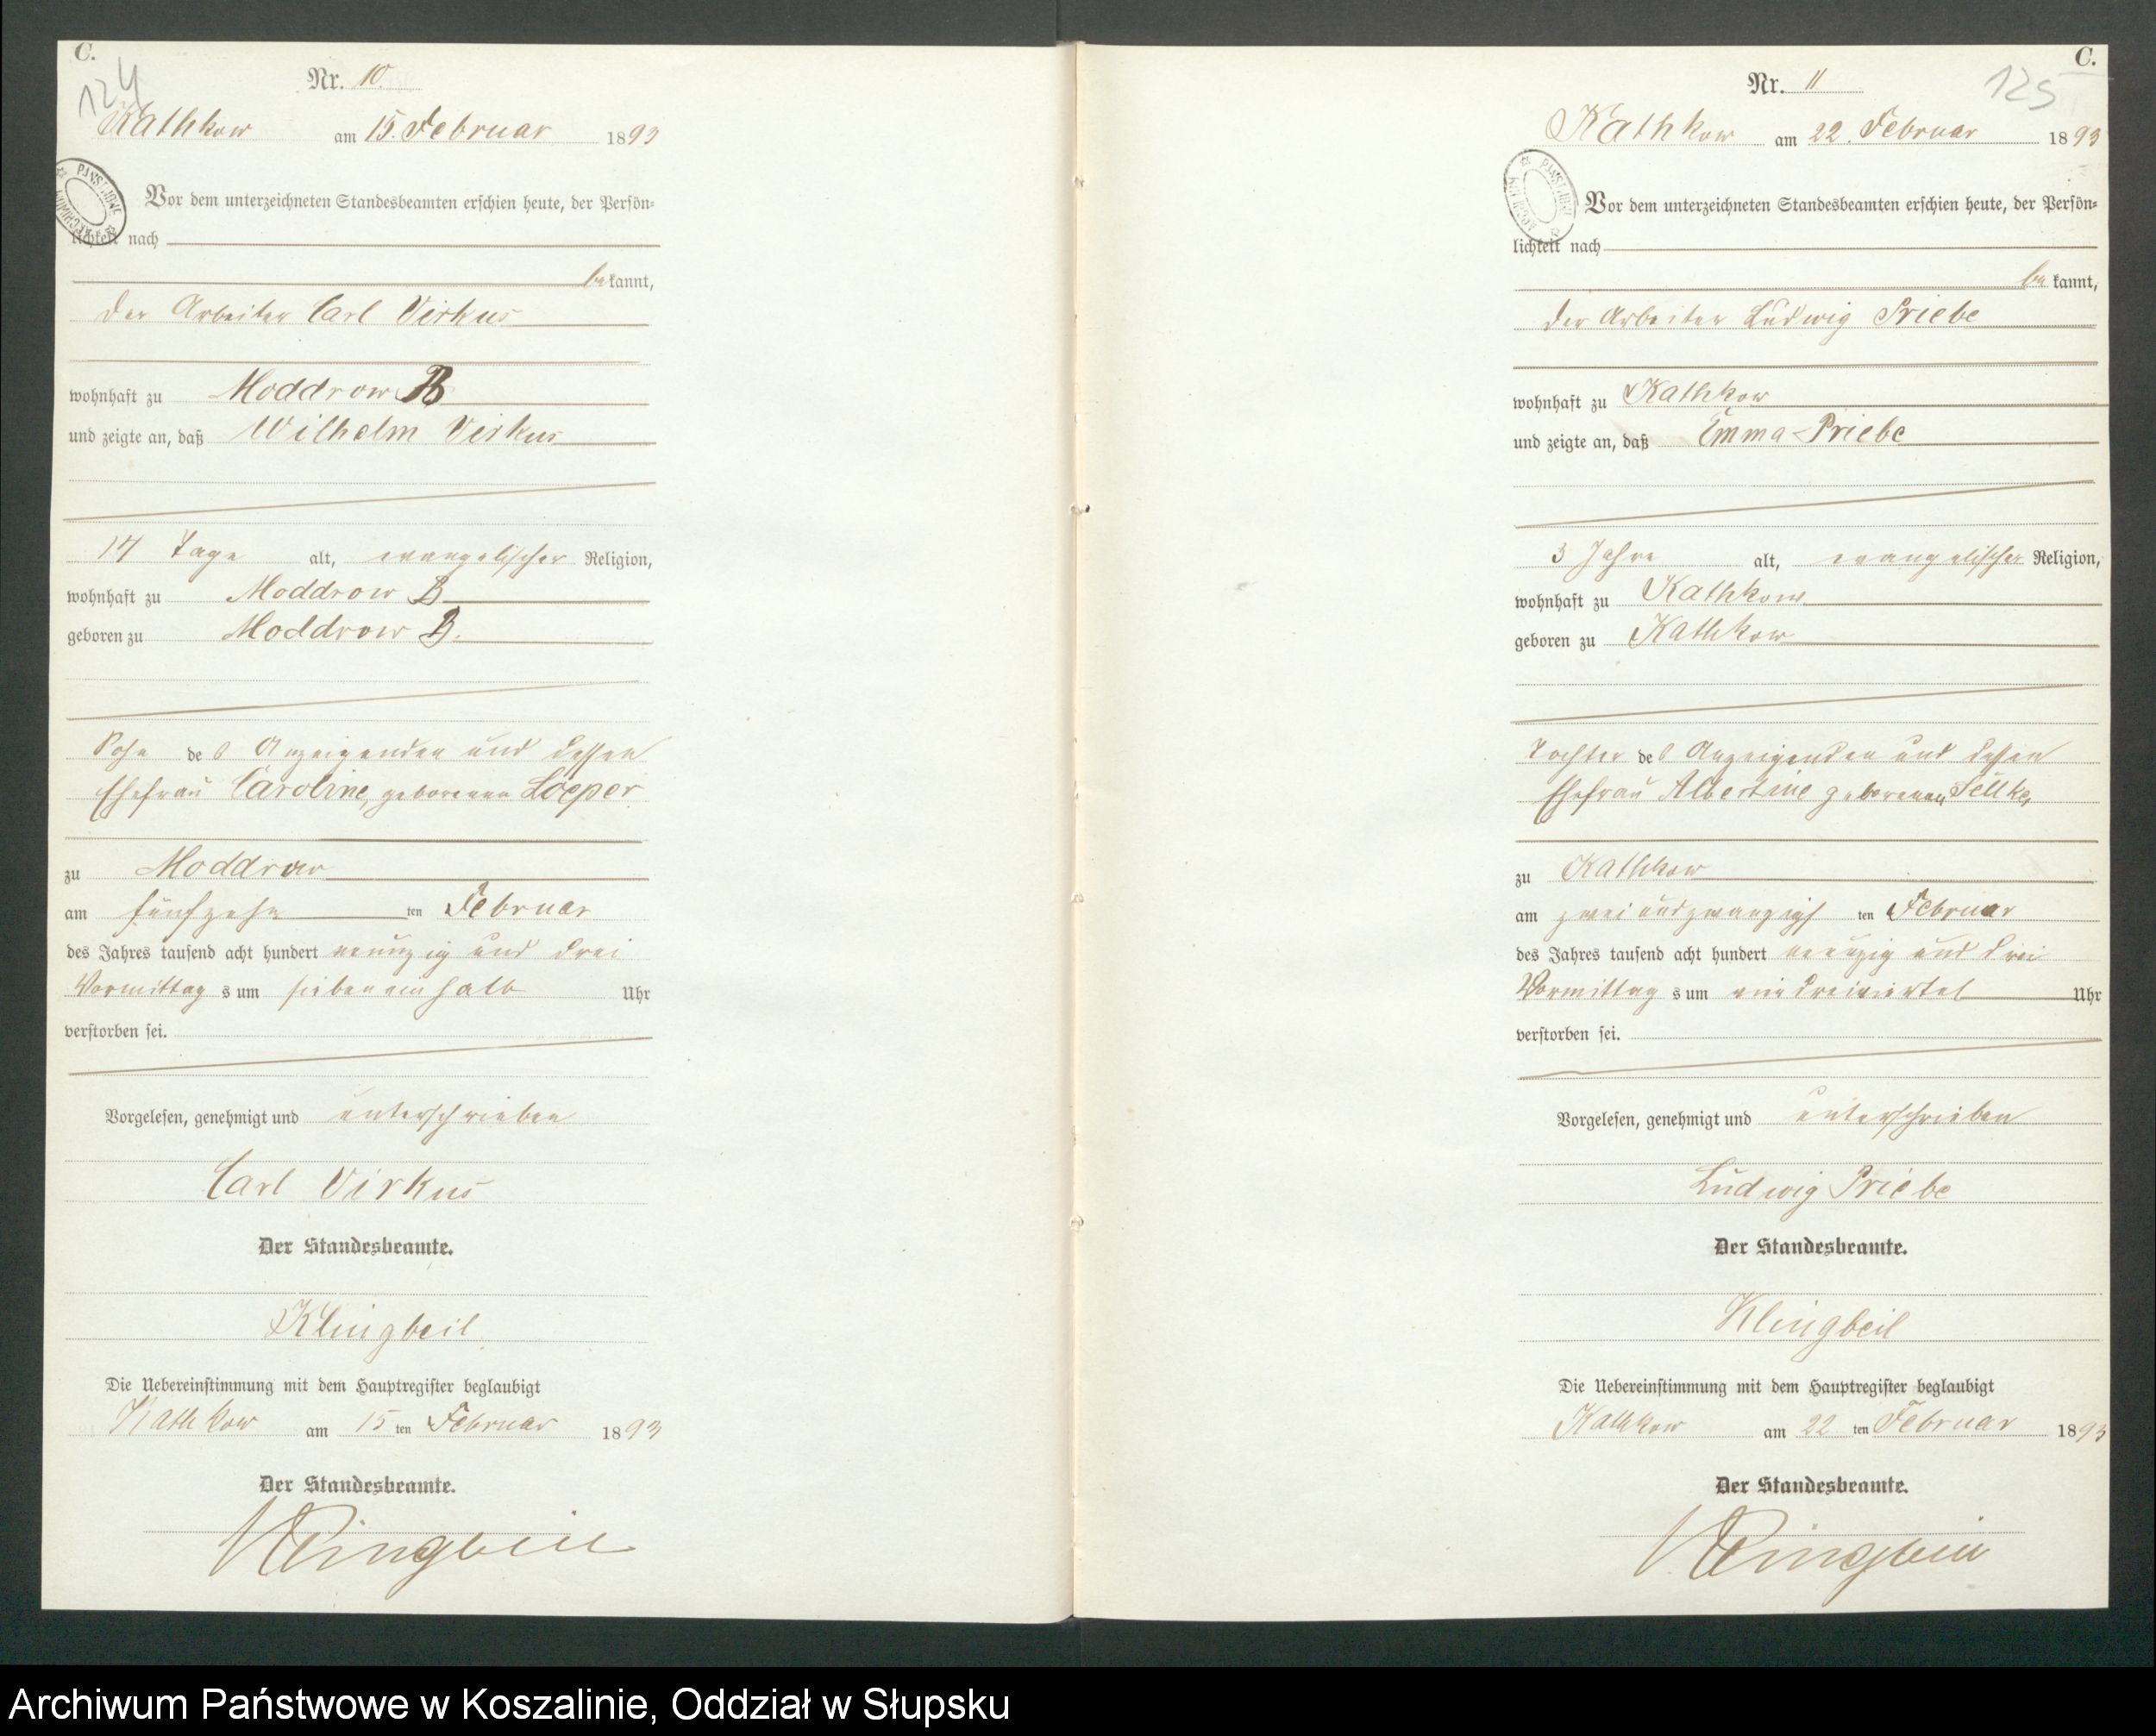 C.
124
Nr. 10.
Kathkow am 15. Februar 1893
Vor dem unterzeichneten Standesbeamten erschien heute, der Persön-
lichkeit nach
bekannt,
der Arbeiter Carl Virkus
wohnhaft zu Moddrow B
und zeigte an, daß Wilhelm Virkus
Tage alt, evangelischer Religion,
wohnhaft zu Moddrow B
geboren zu Moddrow B.
Sohn des Anzeigenden und dessen
Ehefrau Caroline, geborenen Loeper
zu Moddrow
am fünfzehn ten Februar
des Jahres tausend acht hundert neunzig und drei
Vormittags um sieben ein halb Uhr
verstorben sei.
Vorgelesen, genehmigt und unterschrieben
Carl Virkus
Der Standesbeamte.
Klingbeil
Die Uebereinstimmung mit dem Hauptregister beglaubigt
Kathkow am 15 ten Februar 1893
Der Standesbeamte.
Klingbeil
C.
125
Nr. 11
Kathkow am 22. Februar 1893
Vor dem unterzeichneten Standesbeamten erschien heute, der Persön-
lichkeit nach
bekannt,
der Arbeiter Ludwig Priebe
wohnhaft zu Kathkow
und zeigte an, daß Emma Priebe
3 Jahre alt, evangelischer Religion,
wohnhaft zu Kathkow
geboren zu Kathkow
Tochter des Anzeigenden und dessen
Ehefrau Albertine geborenen
zu Kathkow
am zwei und zwanzigs ten Februar
des Jahres tausend acht hundert neunzig und drei
Vormittags um ein dreiviertel Uhr
verstorben sei.
Vorgelesen, genehmigt und unterschrieben
Ludwig Priebe
Der Standesbeamte.
Klingbeil
Die Uebereinstimmung mit dem Hauptregister beglaubigt
Kathkow am 22 ten Februar 1893
Der Standesbeamte.
Klingbeil
Archiwum Państwowe w Koszalinie, Oddział w Słupsku